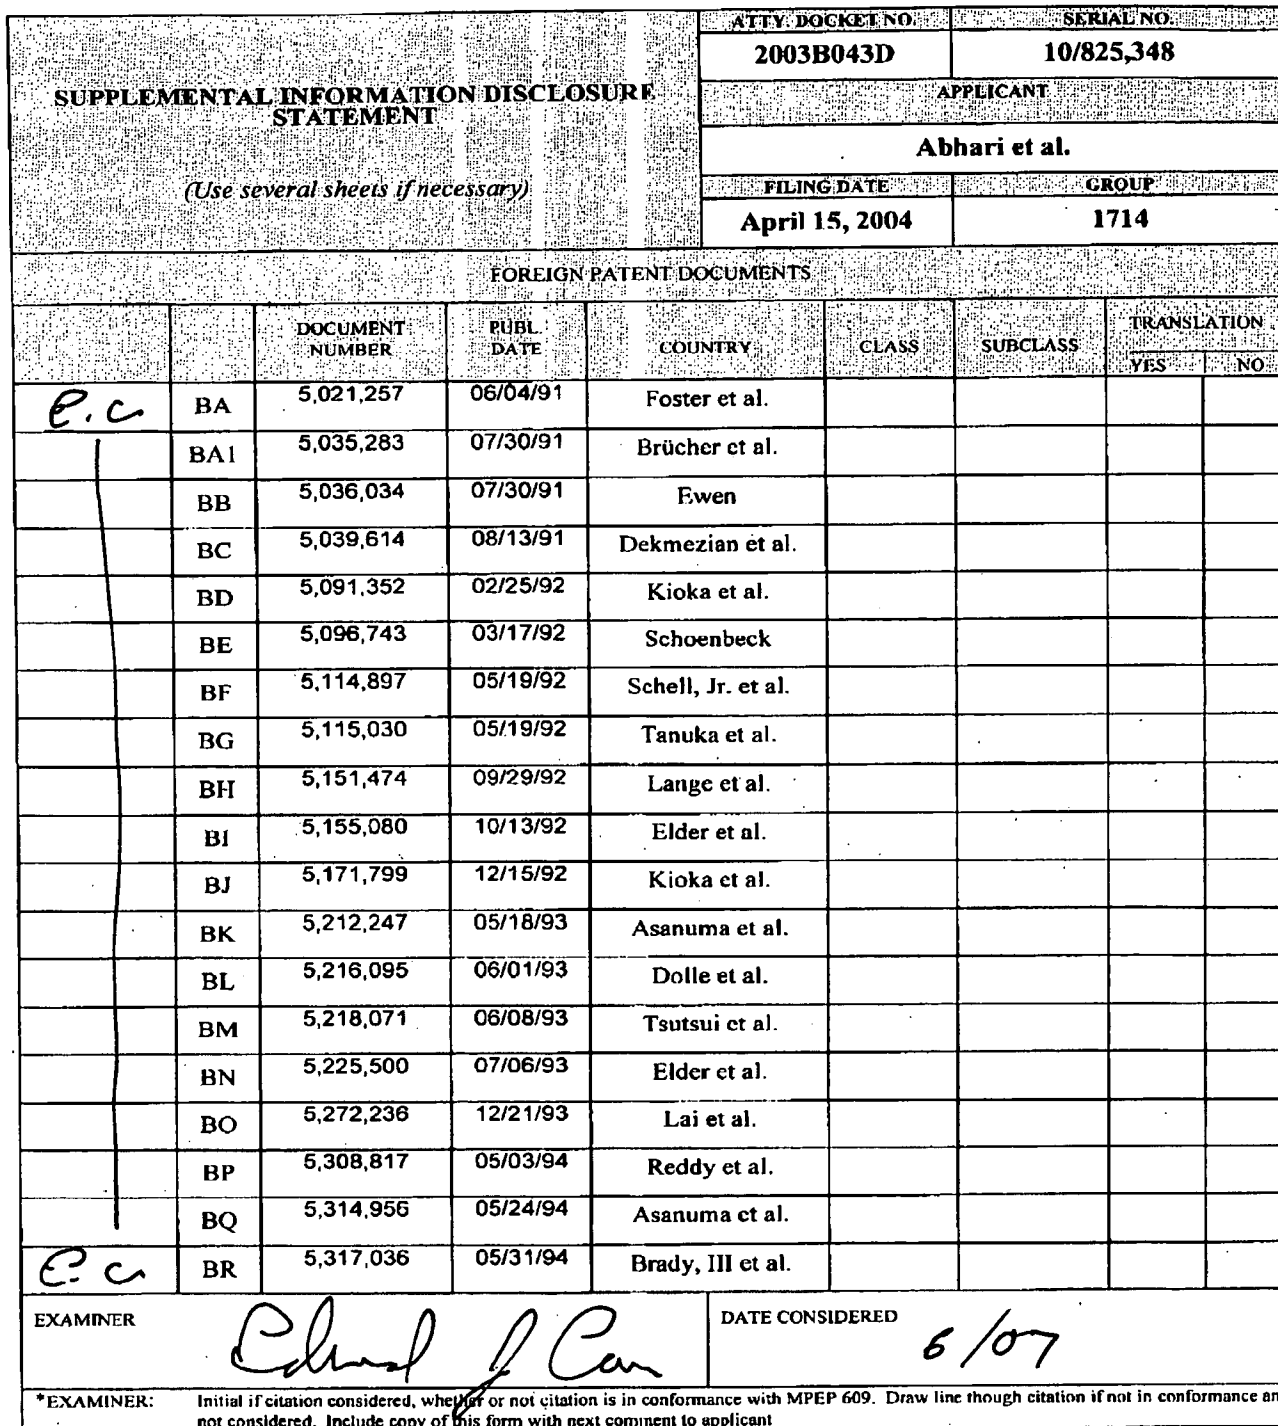 ATTY. DOCKET NO. SERIAL NO.
2003B043D 10/825,348
SUPPLEMENTAL INFORMATION DISCLOSURE
STATEMENT
APPLICANT
Abhari et al.
(Use several sheets if necessary)
FILING DATE GROUP
April 15, 2004 1714
FOREIGN PATENT DOCUMENTS
DOCUMENT NUMBER PUBL. DATE COUNTRY CLASS SUBCLASS TRANSLATION
YES NO
e.c BA 5,021,257 06/04/91 Foster et al.
BA1 5,035,283 07/30/91 Brücher et al.
BB 5,036,034 07/30/91 Ewen
BC 5,039,614 08/13/91 Dekmezian et al.
BD 5,091,352 02/25/92 Kioka et al.
BE 5,096,743 03/17/92 Schoenbeck
BF 5,114,897 05/19/92 Schell, Jr. et al.
BG 5,115,030 05/19/92 Tanuka et al.
BH 5,151,474 09/29/92 Lange et al.
BI 5,155,080 10/13/92 Elder et al.
BJ 5,171,799 12/15/92 Kioka et al.
BK 5,212,247 05/18/93 Asanuma et al.
BL 5,216,095 06/01/93 Dolle et al.
BM 5,218,071 06/08/93 Tsutsui et al.
BN 5,225,500 07/06/93 Elder et al.
BO 5,272,236 12/21/93 Lai et al.
BP 5,308,817 05/03/94 Reddy et al.
BQ 5,314,956 05/24/94 Asanuma et al.
e.c BR 5,317,036 05/31/94 Brady, III et al.
EXAMINER DATE CONSIDERED
6/07
*EXAMINER: Initial if citation considered, whether or not citation is in conformance with MPEP 609. Draw line though citation if not in conformance an
not considered. Include copy of this form with next comment to applicant